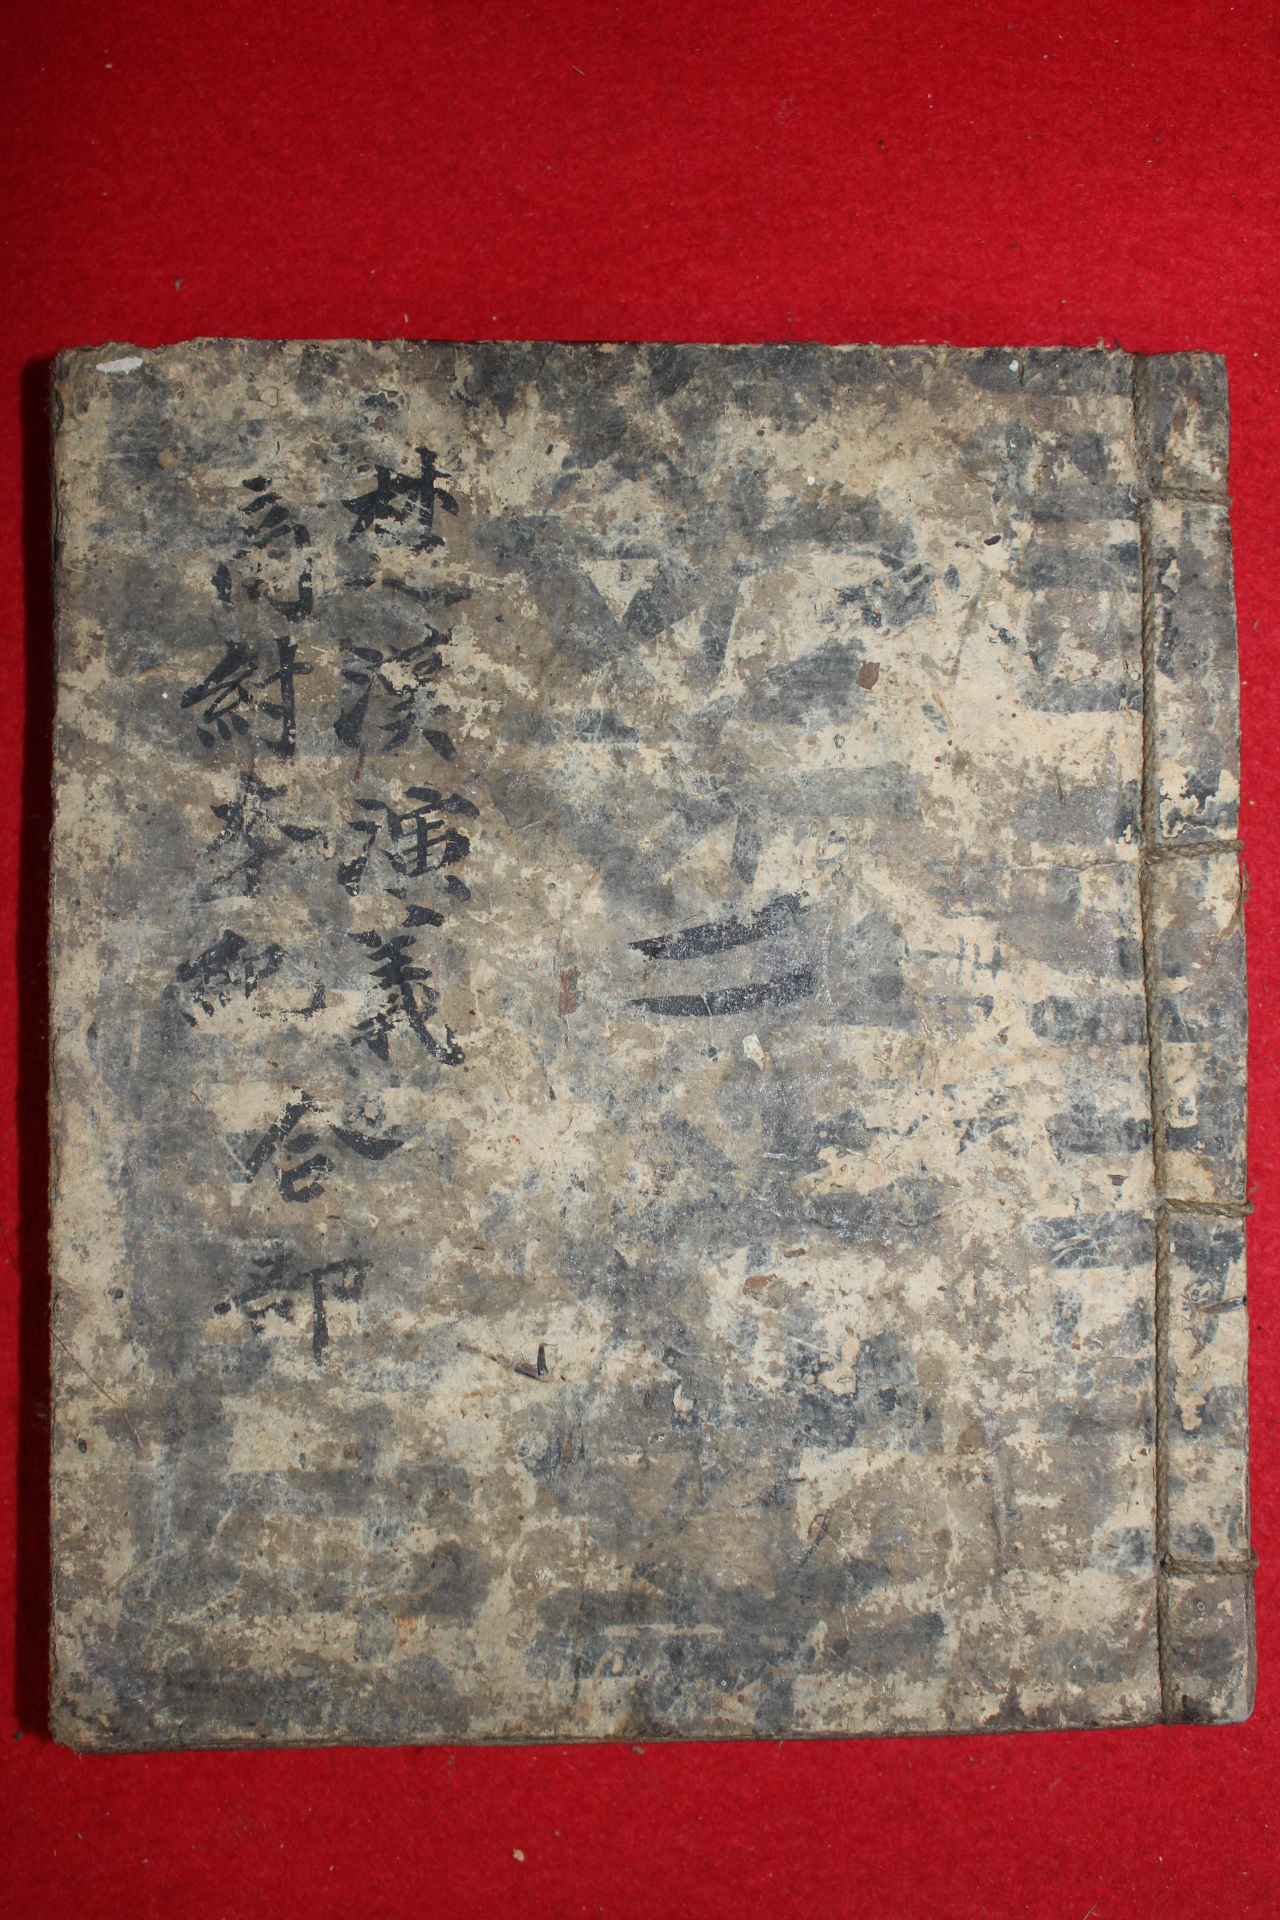 二
楚漢演義
商紂本紀
合部